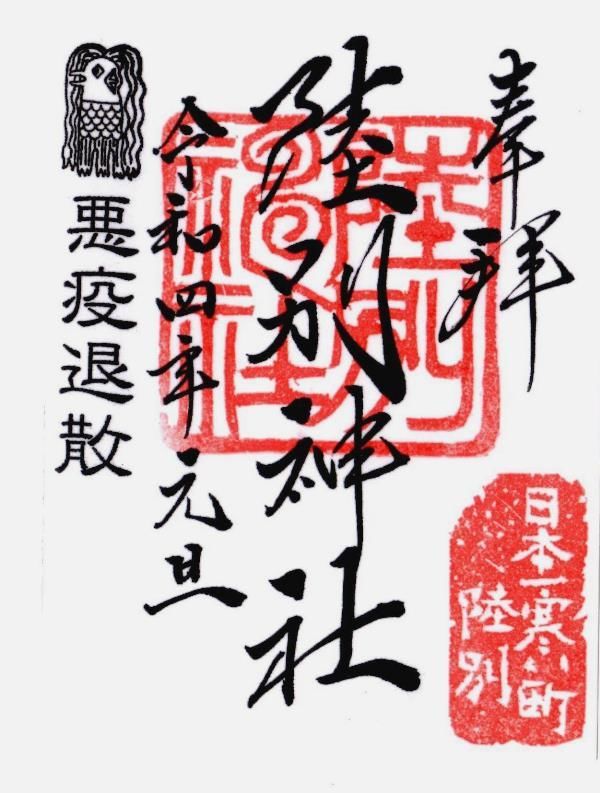 奉拝
陸別神社
令和四年元旦
悪疫退散
陸別神社
日本一寒い町
陸別